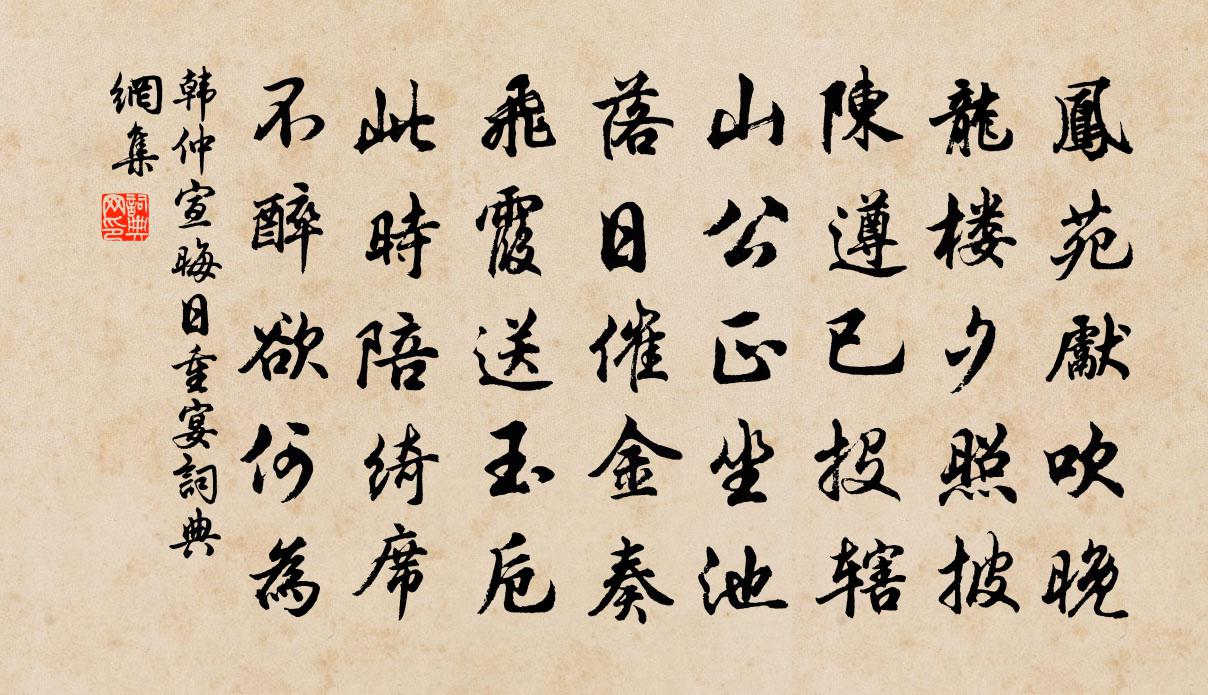 鳳苑獻吹晚
龍楼夕照披
陳遵已投轄
山公正坐池
落日催金奏
飛霞送玉卮
此時陪綺席
不醉欲何為
韩仲宣晦日重宴詞典
網集
詞典
网印